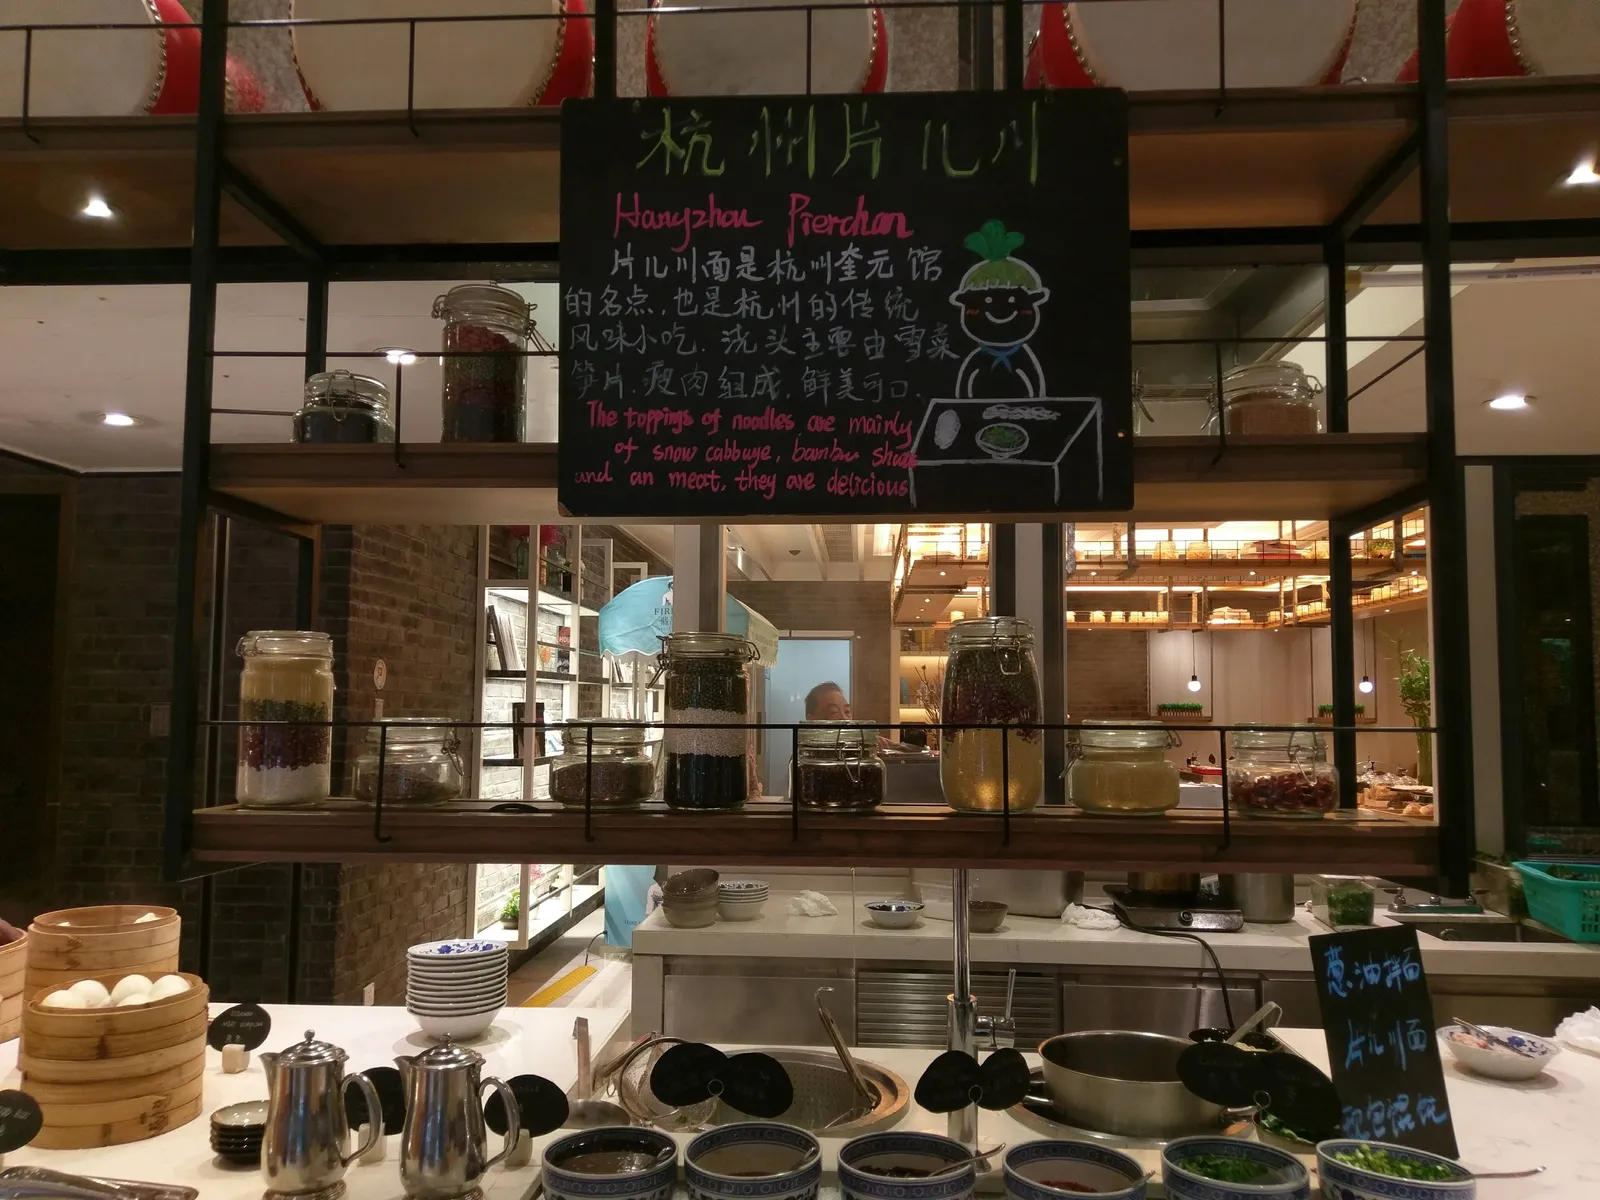 杭州片儿川
Hangzhou Pierchan
片儿川面是杭州奎元馆
的名点,也是杭州的传统
风味小吃.浇头主要由雪菜
笋片.瘦肉组成,鲜美可口.
The toppings of noodles are mainly
of snow cabbage, bambu
and an meat, they are delicious
FIR
葱油拌面
片儿川面
现包馄饨